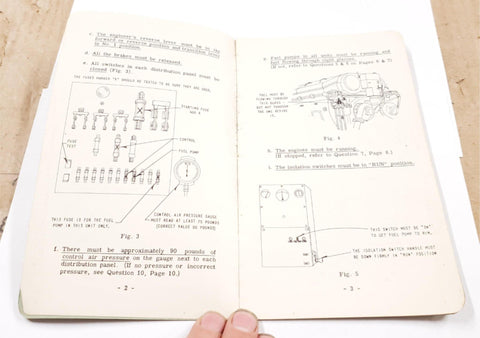 c. The engineer's reverse lever must be in the
forward or reverse position and transition lever
in No. 1 position.
d. All the brakes must be released.
e. All switches in each distribution panel must be
closed (Fig. 3).
THE FUSES MARKED "X" SHOULD BE TESTED TO BE SURE THEY ARE GOOD.
STARTING FUSE
400 A
FUSE
TEST
CONTROL
FUEL PUMP
THIS FUSE IS FOR THE FUEL
PUMP IN THIS UNIT ONLY.
CONTROL AIR PRESSURE GAUGE
MUST READ AT LEAST 75 POUNDS
(CORRECT VALUE 90 POUNDS)
Fig. 3
f. There must be approximately 90 pounds of
control air pressure on the gauge next to each
distribution panel. (If no pressure or incorrect
pressure, see Question 10, Page 10.)
- 2 -
g. Fuel pumps in all units must be running and
fuel flowing through sight glasses.
(If not, refer to Questions
FUEL MUST BE
FLOWING THROUGH
THIS GLASS
BUT NOT THROUGH
THE ONE BEHIND
IT.
Fig. 4
h. The engines must be running.
(If stopped, refer to Question 7, Page 8.)
i. The isolation switches must be in "RUN" position.
THIS SWITCH MUST BE "ON"
TO GET FUEL PUMP TO RUN.
THE ISOLATION SWITCH HANDLE MUST
BE DOWN FIRMLY IN "RUN" POSITION
Fig. 5
- 3 -